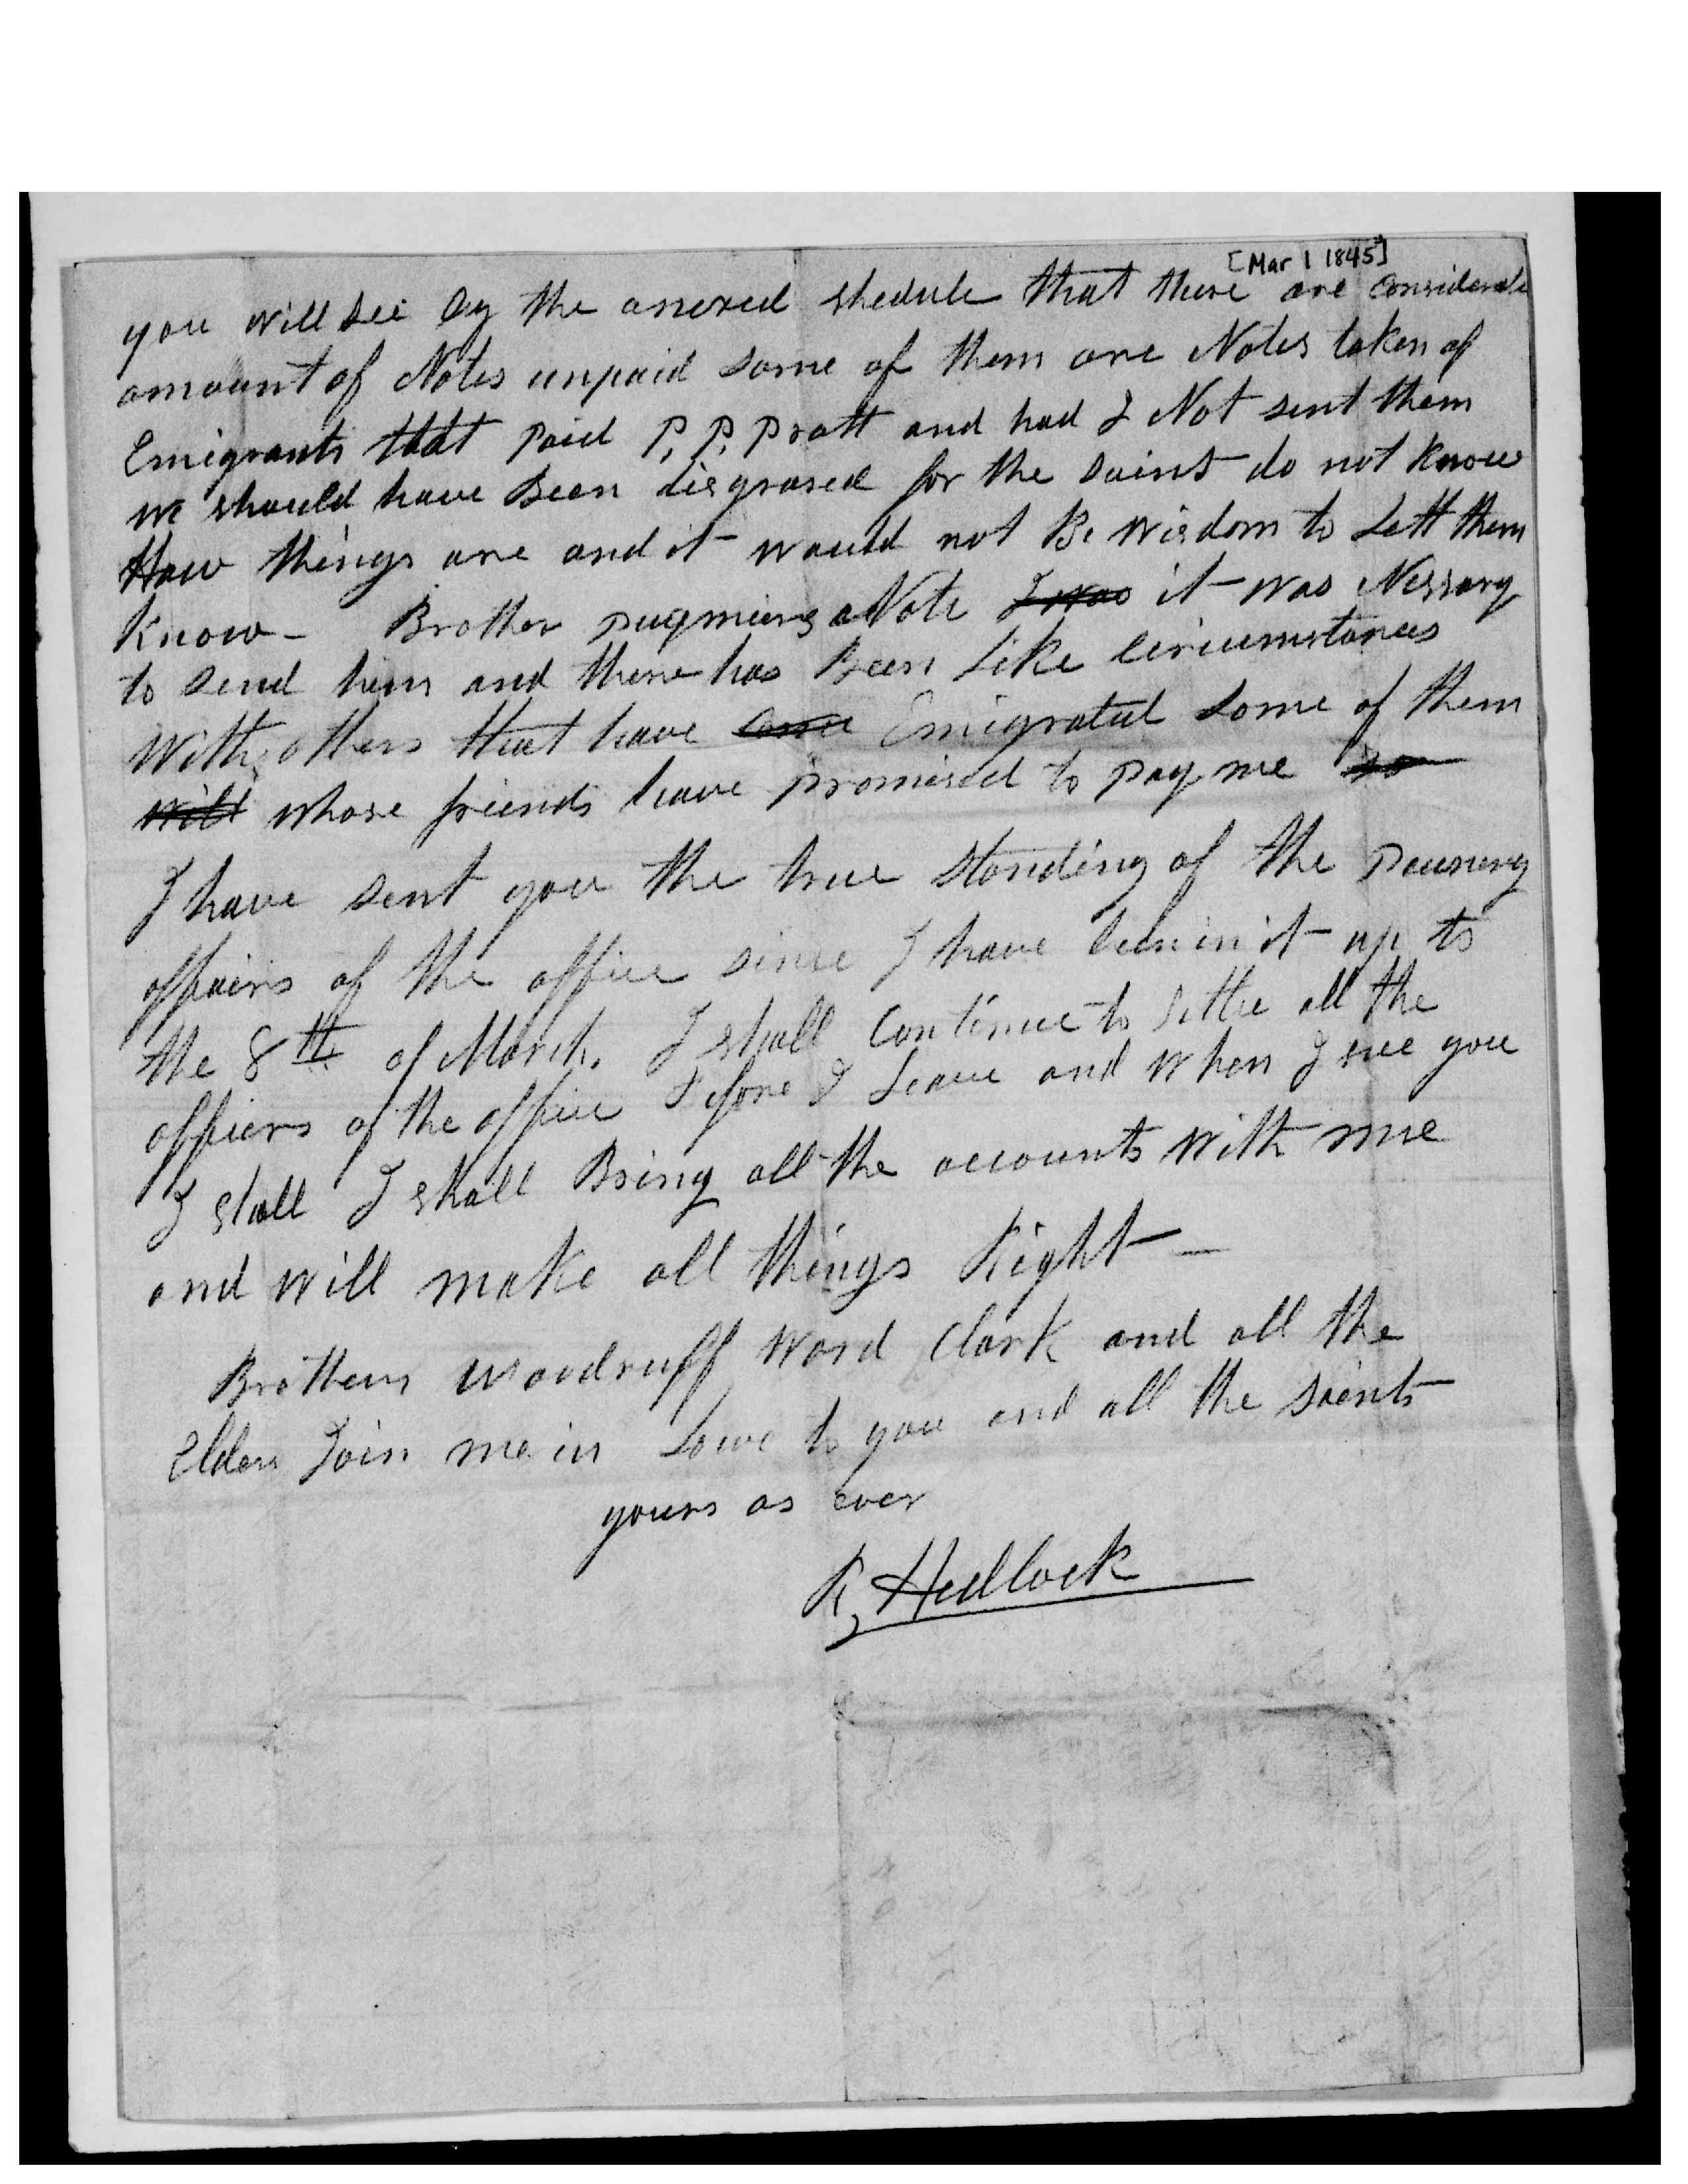 [Mar 1 1845]
you will see by the anexed shedule that there are considerable
amount of Notes unpaid some of them are Notes taken of
Emigrants that paid P. P. Pratt and had I Not sent them
we should have Been disgrased for the saints do not know
How things are and it would not Be wisdom to Lett them
Know - Brother pugmiers Note I was it was Nessary
to send him and there has Been Like circumstances
With others that have Emigrated some of them
will whose friends have promised to pay me so
I have sent you the true standing of the pecunery
affairs of the office since I have been in it up to
the 8th of March. I shall continue to settle all the
affiers of the office Before I Leave and when I see you
I shall I shall Bring all the accounts with me
and will make all things Right -
Brothers woodruff Ward Clark and all the
Elders Join me in Love to you and all the saints
yours as ever
R Hedlock